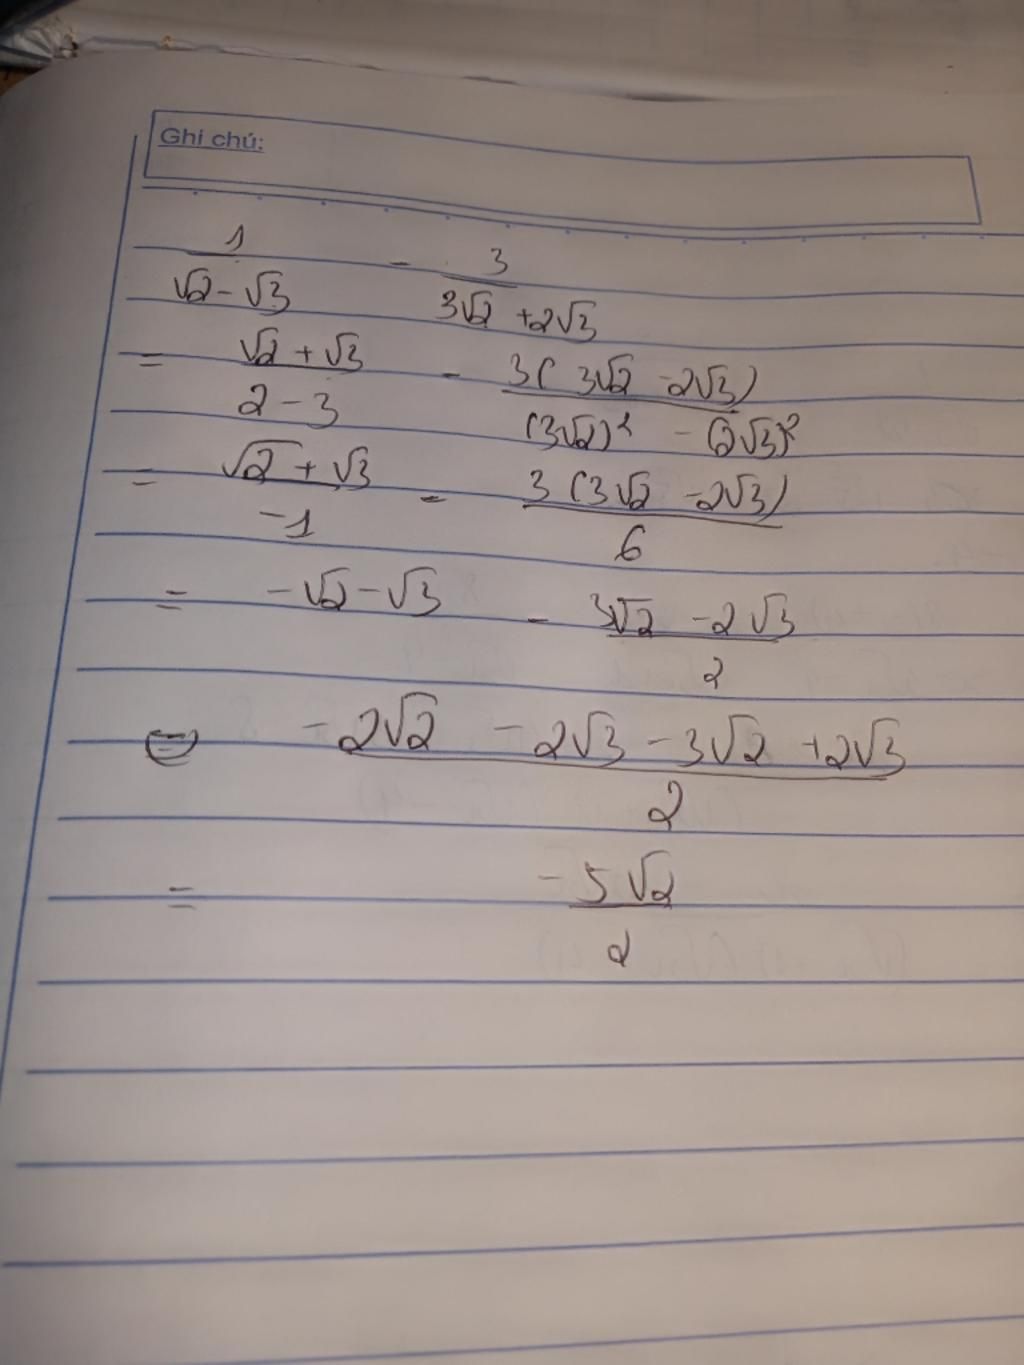 Ghi chú:
1/(√2 - √3) - 3/(3√2 + 2√3)
= (√2 + √3)/(2 - 3) - 3(3√2 - 2√3)/((3√2)² - (2√3)²)
= (√2 + √3)/(-1) - 3(3√2 - 2√3)/6
= -√2 - √3 - (3√2 - 2√3)/2
= (-2√2 - 2√3 - 3√2 + 2√3)/2
= (-5√2)/2